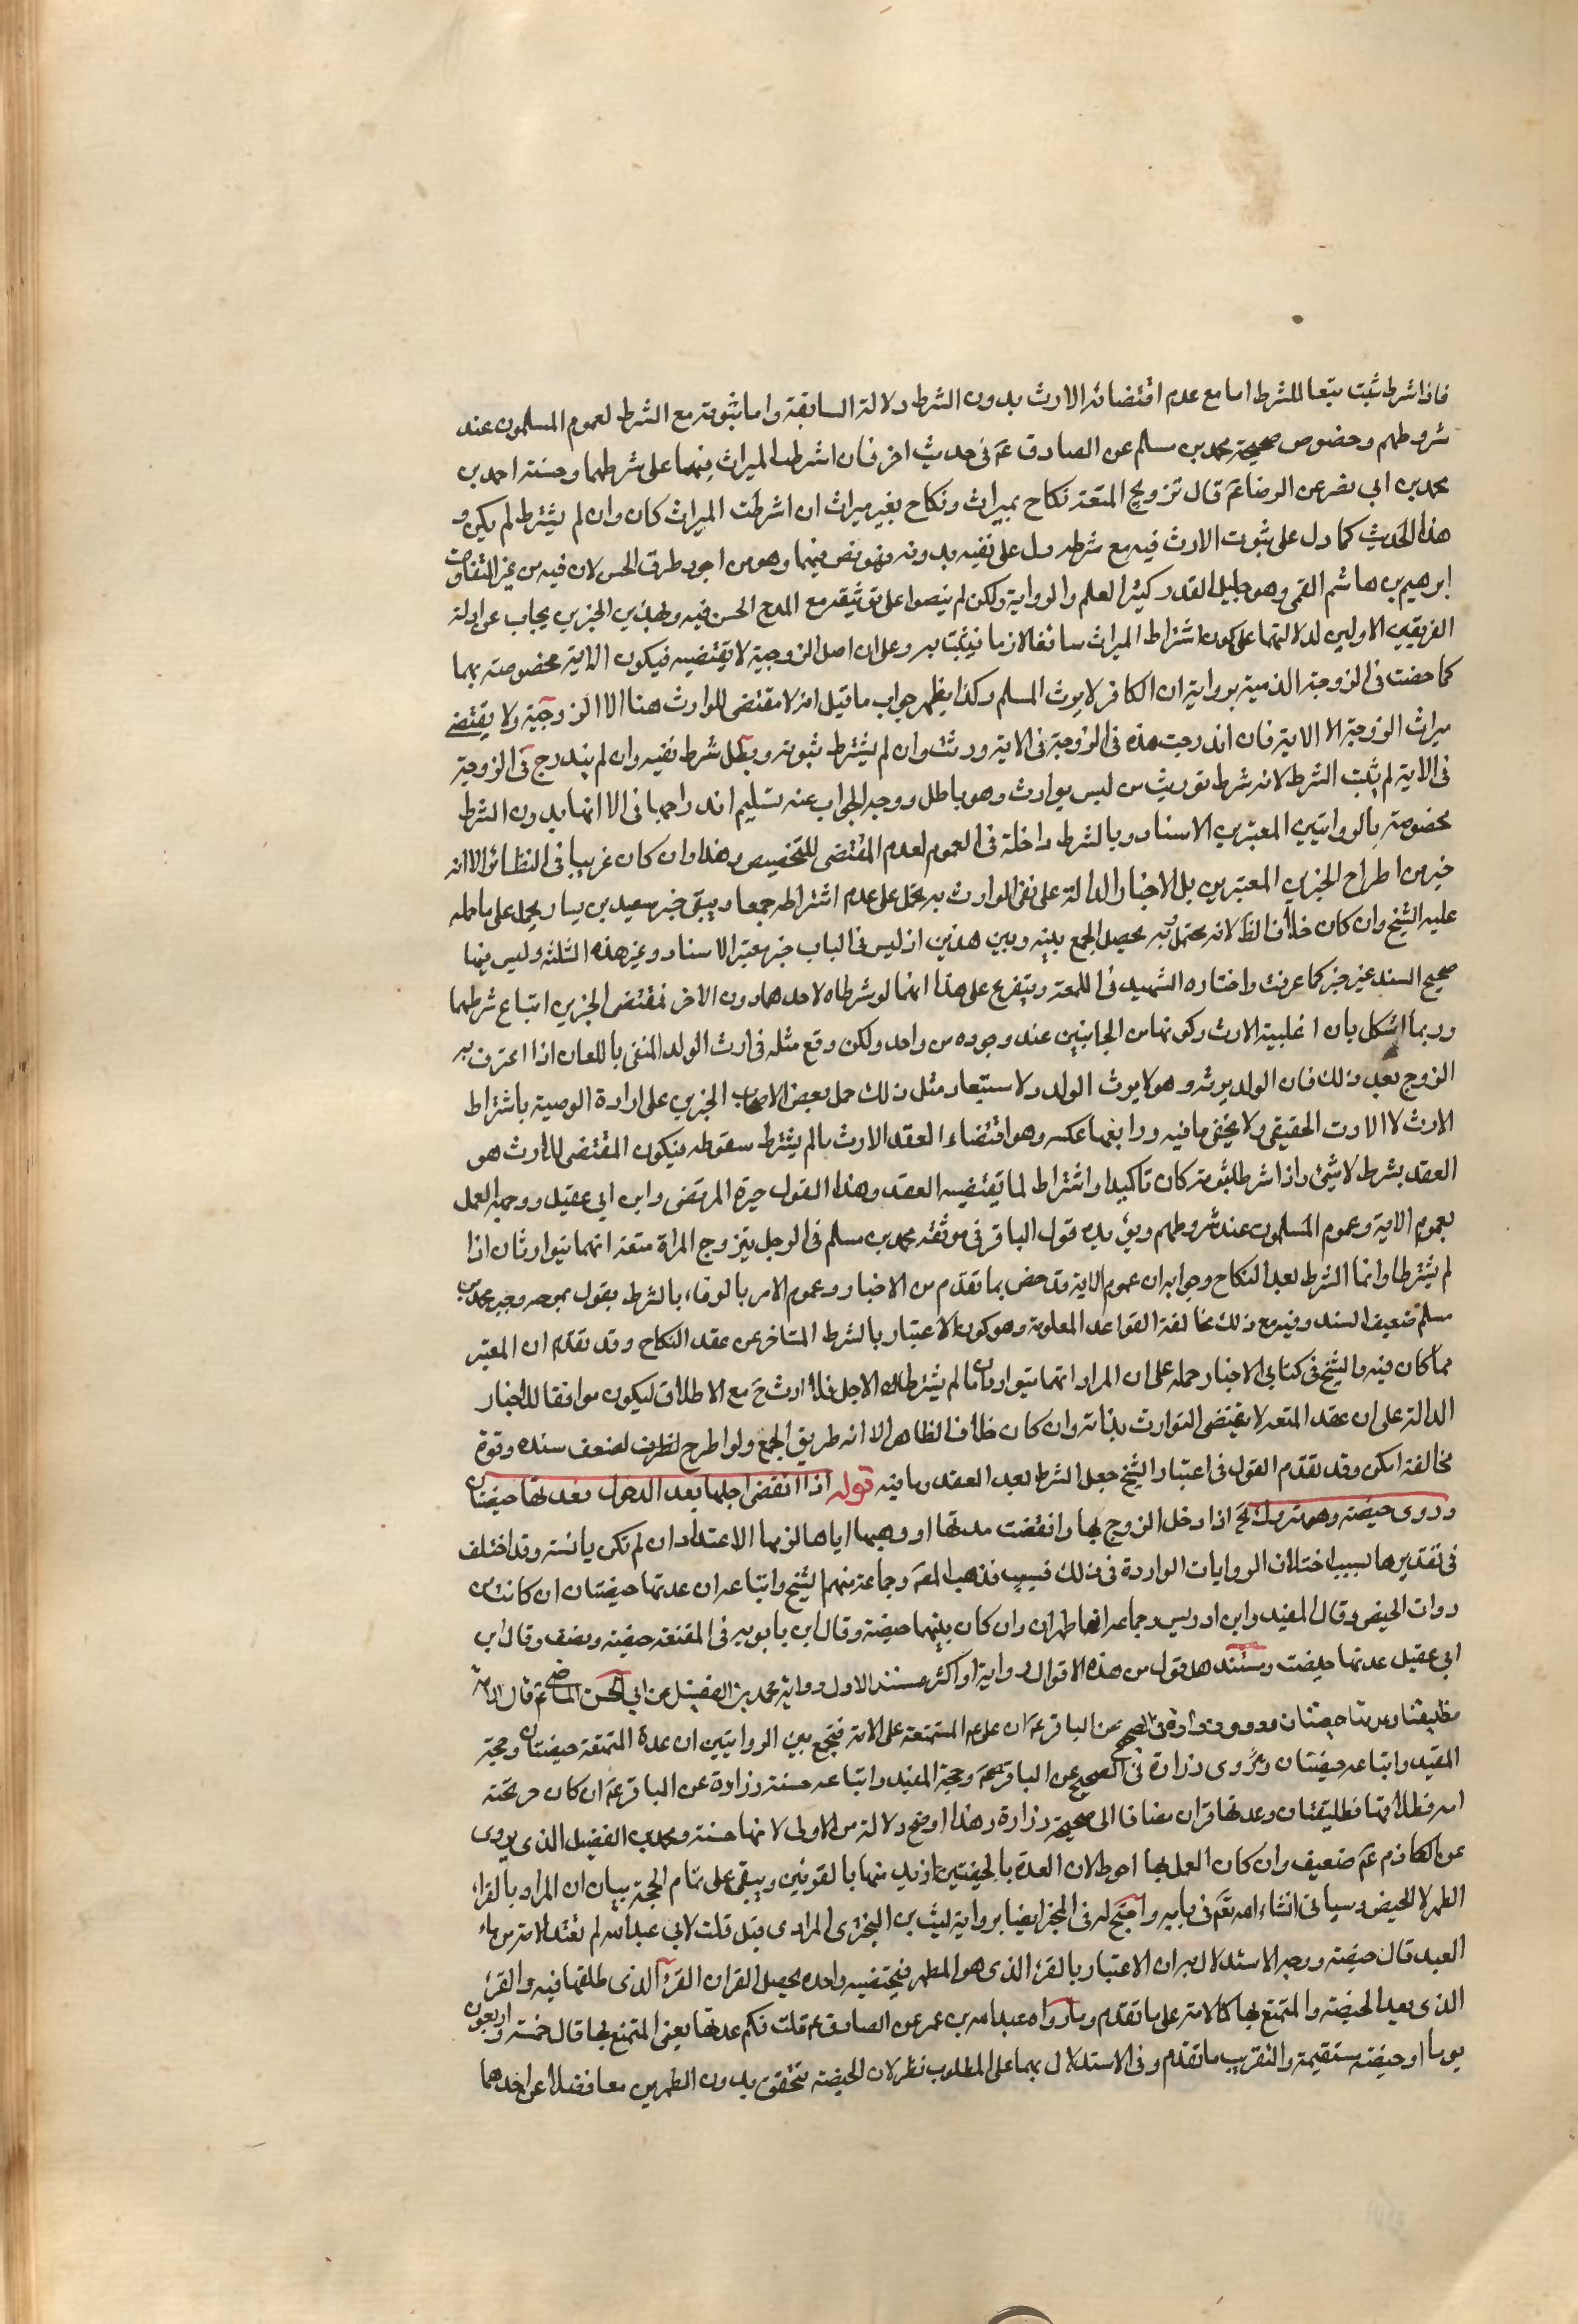 فاذا شرط ثبت تبعا للشرط اما مع عدم اقتضائه الارث بدون الشرط دلالة السابقة واما ثبوته مع الشرط لعموم المسلمون عند
شروطهم وخصوص صحيحة محمد بن مسلم عن الصادق عم فى حديث اخر فان اشرطا الميراث فهما على شرطهما وحسنة احمد بن
محمد بن ابى نصر عن الرضا عم قال تزويج المتعة نكاح بميراث ونكاح بغير ميراث ان اشرطت الميراث كان وان لم يشترط لم يكن و
هذا الحديث كما دل على ثبوت الارث فيه مع شرطه دل على نفيه بدونه فهو نص فيهما وهو من اجود طرق الحسن لان فيه من غير الثقات
ابرهيم بن هاشم القمى وهو جليل القدر كثير العلم والرواية ولكن لم ينصوا على توثيقه مع المدح الحسن فيه وبهذين الخبرين يجاب عن ادلة
الفريقين الاولين لدلالتهما على كون اشتراط الميراث سائغا لازما فيثبت به وعلى ان اصل الزوجية لا يقتضيه فيكون الاية مخصوصة بهما
كما خصت فى الزوجة الذمية برواية ان الكافر لا يرث المسلم وكذا يظهر جواب ما قيل انه لا مقتضى للوارث هنا الا الزوجية ولا يقتضى
ميراث الزوجة الا الاية فان اندرجت هذه فى الزوجة فى الاية ورثت وان لم يشترط ثبوته وبطل شرط نفيه وان لم يندرج فى الزوجة
فى الاية لم يثبت الشرط لانه شرط توريث من ليس بوارث وهو باطل ووجه الجواب عنه تسليم اندراجها فى الا انها بدون الشرط
مخصوصة بالروايتين المعتبرين الاسناد وبالشرط داخلة فى العموم لعدم المقتضى للتخصيص وهذا وان كان غريبا فى النظائر الا انه
خير من اطراح الخبرين المعتبرين بل الاخبار الدالة على نفى الوارث به يحمل على عدم اشتراطه جمعا ويبقى خبر سعيد بن يسار يحمل على ما حمله
عليه الشيخ وان كان خلاف الظ لانه يحتمل به يحصل الجمع بينه وبين هذين اذ ليس فى الباب خبر معتبر الاسناد وغير هذه الثلثة وليس فيها
صحيح السند غير خبر كما عرفت واختاره الشهيد فى اللمعة ويتفرع على هذا انهما لو شرطاه لاحدهما دون الاخر فمقتضى الخبرين اتباع شرطهما
وربما اشكل بان اغلبية الارث وكونها من الجانبين عند وجوده من واحد ولكن وقع مثله فى ارث الولد المنفى باللعان اذا اعترف به
الزوج بعد ذلك فان الولد يرثه وهو لا يرث الولد ولاستبعاد مثل ذلك حمل بعض الاصحاب الخبرين على ارادة الوصية باشتراط
الارث لا الارث الحقيقى ولا يخفى ما فيه ورابعها عكسه وهو اقتضاء العقد الارث ما لم يشترط سقوطه فيكون المقتضى للارث هو
العقد بشرط لا شئ واذا شرط ثبوته كان تاكيدا واشتراط لما يقتضيه العقد وهذا القول خيرة المرتضى وابن ابى عقيل ووجهه العمل
بعموم الاية وعموم المسلمون عند شروطهم ويؤيده قول الباقر فى موثقة محمد بن مسلم فى الرجل يتزوج المراة متعة انهما يتوارثان اذا
لم يشترطا وانما الشرط بعد النكاح وجوابه ان عموم الاية قد خص بما تقدم من الاخبار وعموم الامر بالوفاء بالشرط بقول بموجبه وخبر محمد بن
مسلم ضعيف السند وفيه مع ذلك مخالفة القواعد المعلومة وهو كون الاعتبار بالشرط المتاخر عن عقد النكاح وقد تقدم ان المعتبر
مما كان فيه والشيخ فى كتابى الاخبار حمله على ان المراد انهما يتوارثان ما لم يشترطا الاجل فلا ارث ح مع الاطلاق ليكون موافقا للاخبار
الدالة على ان عقد المتعة لا يقتضى التوارث بذاته وان كان خلاف الظاهر الا انه طريق الجمع ولو اطرح لضعف سنده وقوة
مخالفة امكن وقد تقدم القول فى اعتبار الشيخ جعل الشرط بعد العقد وما فيه قوله اذا انقضى اجلها بعد الدخول فعدتها حيضتان
وروى حيضة وهو متروك الخ اذا دخل الزوج بها وانقضت مدتها او وهبها اياها لزمها الاعتداد ان لم تكن يائسة وقد اختلف
فى تقديرها بسبب اختلاف الروايات الواردة فى ذلك فذهب المص وجماعة منهم الشيخ واتباعه ان عدتها حيضتان ان كانت من
ذوات الحيض وقال المفيد وابن ادريس وجماعة انها طهران وان كان بينهما حيضة وقال ابن بابويه فى المقنعة حيضة ونصف وقال ابن
ابى عقيل عدتها حيضة ومستند هل قول من هذه الاقوال رواية او اكثر مستند الاول رواية محمد بن الفضيل عن ابى الحسن الماضى عم قال الامة
حيضتان وروى زرارة فى الصحيح عن الباقر عم ان على المتمتعة على الامة فيجمع بين الروايتين ان عدة المتمتعة حيضتان وحجة
المفيد واتباعه حيضتان وروى زرارة فى الصحيح عن الباقر عم وحجة المفيد واتباعه حسنة زرارة عن الباقر عم ان كان حر تحته
امة فطلاقها تطليقتان وعدتها قرآن مضافا الى صحيحة زرارة وهذا اوضح دلالة من الاولى لانها حسنة ومحمد بن الفضيل الذى يروى
عن الكاظم عم ضعيف وان كان العمل بها احوط لان العدة بالحيضتين ازيد منها بالقرئين ويبقى على تمام الحجة بيان ان المراد بالقرء
الطهر لا الحيض وسياتى انشاء الله تعم فى بابه واحتج له فى المخ ايضا برواية ليث بن البخترى المرادى قيل قلت لابى عبدالله لم تعتد الامة من ماء
العبد قال حيضة ووجه الاستدلال به ان الاعتبار بالقرء الذى هو الطهر فبحيضة واحدة يحصل القرآن القرء الذى طلقها فيه والقرء
الذى بعد الحيضة والمتمتع بها كالامة على ما تقدم وبما رواه عبدالله بن عمر عن الصادق عم قلت فكم عدتها يعنى المتمتع بها قال خمسة و اربعون
يوما او حيضة مستقيمة والتقريب ما تقدم وفى الاستدلال بهما على المطلوب نظر لان الحيضة تتحقق بدون الطهرين معا فضلا عن احدهما